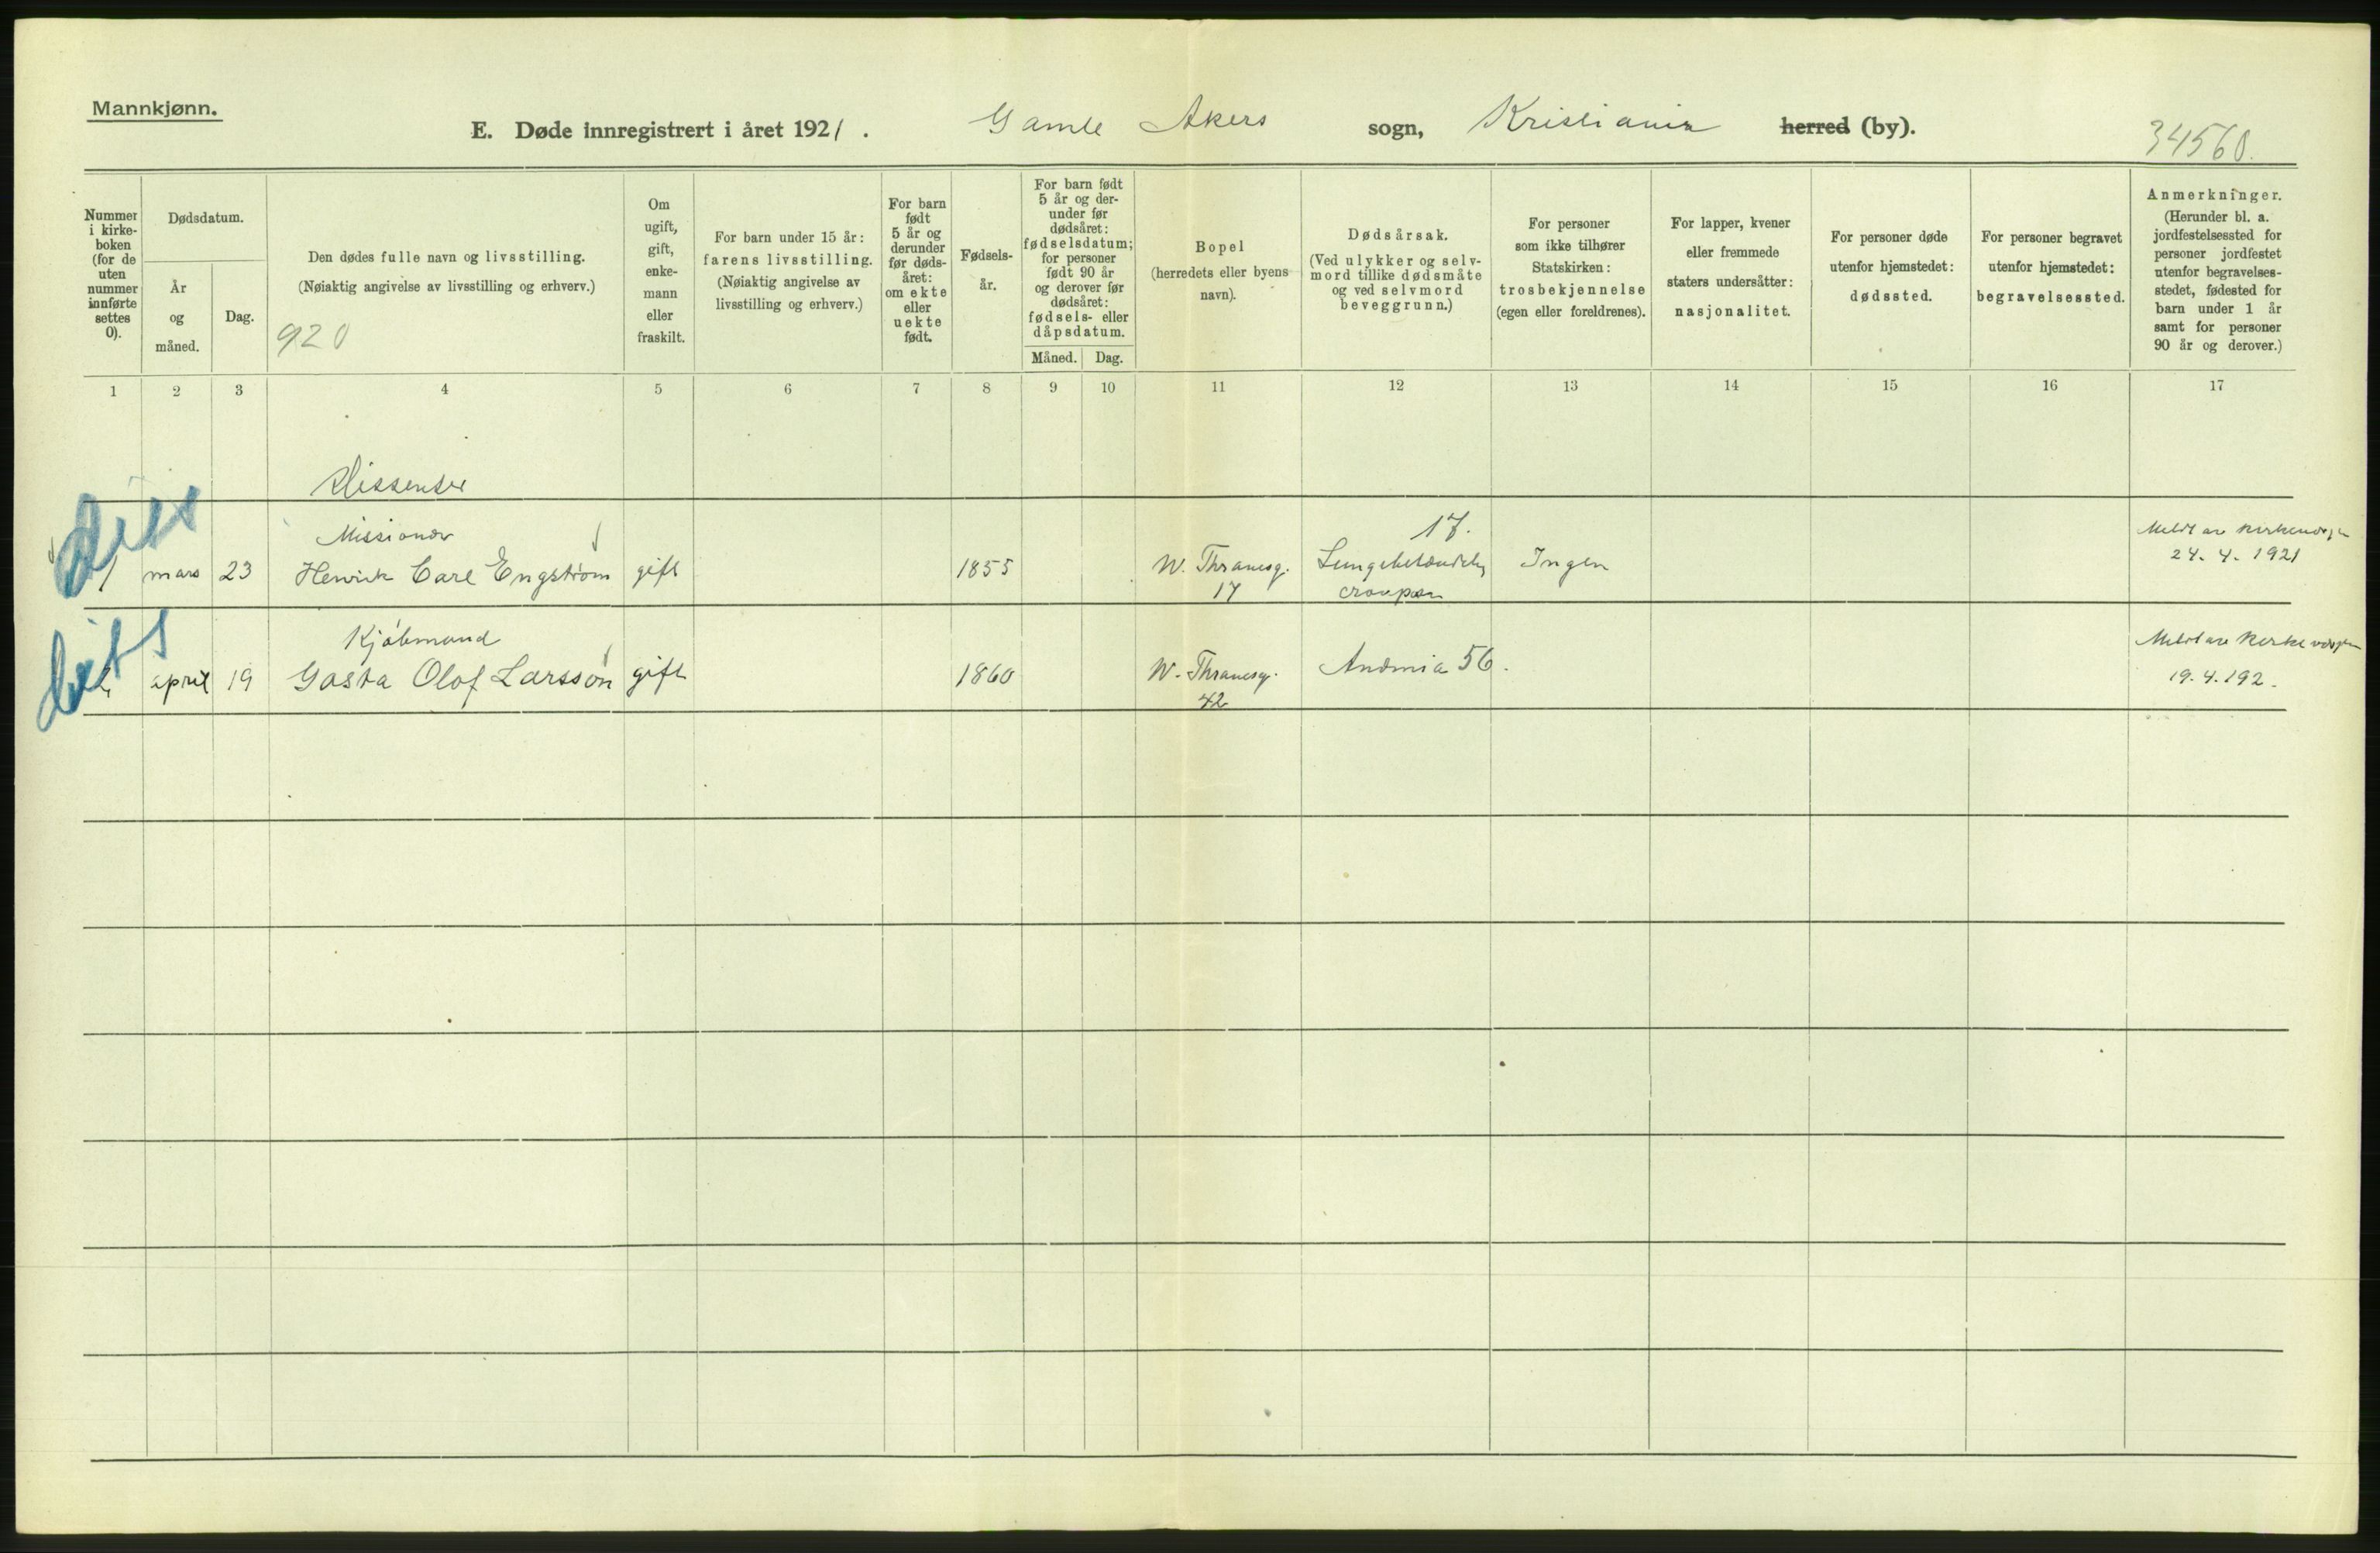 Mannkjønn.
E. Døde innregistrert i året 1921. Gamle Akers sogn, Kristiania herred (by).
34560.
Nummer i kirke-boken (for de uten nummer innførte settes 0).
Dødsdatum.
År og måned.
Dag.
Den dødes fulle navn og livsstilling.
(Nøiaktig angivelse av livsstilling og erhverv.)
920
Om ugift, gift, enke-mann eller fraskilt.
For barn under 15 år:
farens livsstilling.
(Nøiaktig angivelse av
livsstilling og erhverv.)
For barn født 5 år og derunder før døds-året: om ekte eller uekte født.
Fødsels-år.
For barn født
5 år og der-
under før
dødsåret:
fødselsdatum;
for personer
født 90 år
og derover før
dødsåret:
fødsels- eller
dåpsdatum.
Måned. Dag.
Bopel
(herredets eller byens
navn).
Dødsårsak.
(Ved ulykker og selv-
mord tillike dødsmåte
og ved selvmord
beveggrunn.)
For personer
som ikke tilhører
Statskirken:
trosbekjennelse
(egen eller foreldrenes).
For lapper, kvener
eller fremmede
staters undersåtter:
nasjonalitet.
For personer døde
utenfor hjemstedet:
dødssted.
For personer begravet
utenfor hjemstedet:
begravelsessted.
Anmerkninger.
(Herunder bl. a.
jordfestelsessted for
personer jordfestet
utenfor begravelses-
stedet, fødested for
barn under 1 år
samt for personer
90 år og derover.)
1 2 3 4 5 6 7 8 9 10 11 12 13 14 15 16 17
Dissenter
Missionær
1 mars 23 Henrik Carl Engström gift 1855 W. Thranesg. 17 17. Lungebetændelse croupøs Ingen
24. 4. 1921
Kjøbmand
april 19 Gøsta Olof Larsson gift 1860 W. Thranesg. 42 Anæmia 56.
19. 4. 192.